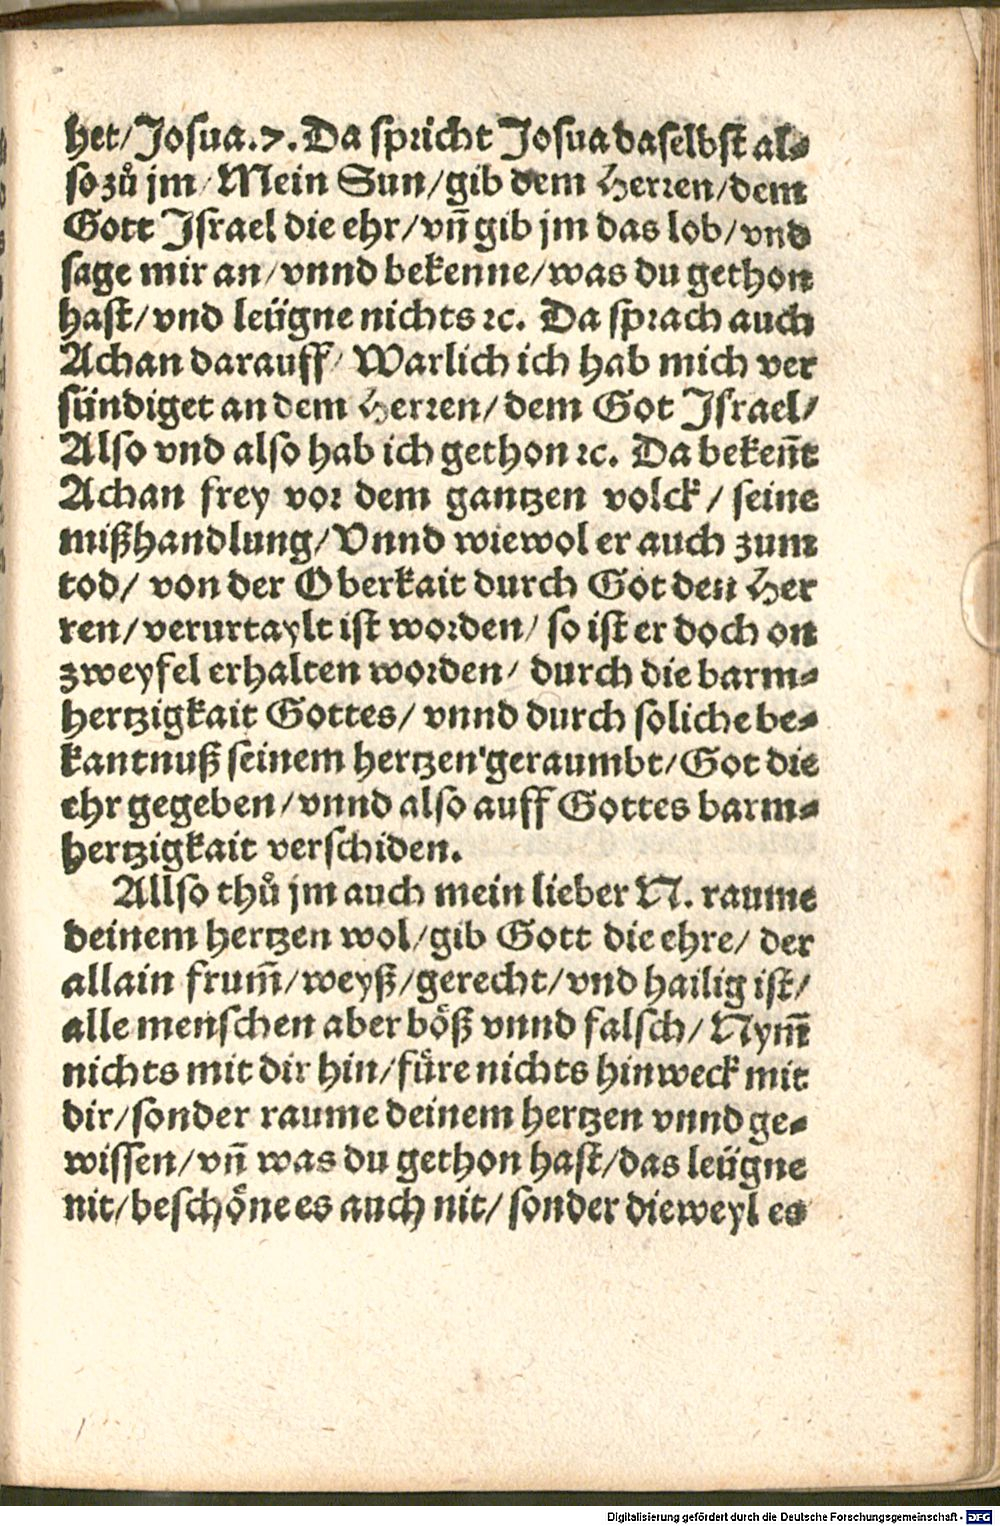 het/Josua.7.Da spricht Josua daselbst al-
so zů jm/Mein Sun/gib dem Herren/dem
Gott Israel die ehr/vñ gib jm das lob/vnd
sage mir an/vnnd bekenne/was du gethon
hast/vnd leügne nichts ꝛc. Da sprach auch
Achan darauff/Warlich ich hab mich ver
sündiget an dem Herren/dem Got Israel/
Also vnd also hab ich gethon ꝛc. Da bekeñt
Achan frey vor dem gantzen volck/seine
mißhandlung/Vnnd wiewol er auch zum
tod/ von der Oberkait durch Got den Her
ren/verurtaylt ist worden/ so ist er doch on
zweyfel erhalten worden/ durch die barm-
hertzigkait Gottes/ vnnd durch soliche be-
kantnuß seinem hertzen geraumbt/Got die
ehr gegeben/vnnd also auff Gottes barm-
hertzigkait verschiden.
Allso thů jm auch mein lieber N. raume
deinem hertzen wol/gib Gott die ehre/ der
allain frum̃/weyß/gerecht/vnd hailig ist/
alle menschen aber böß vnnd falsch/Nym̃
nichts mit dir hin/füre nichts hinweck mit
dir/sonder raume deinem hertzen vnnd ge-
wissen/vñ was du gethon hast/das leügne
nit/beschöne es auch nit/sonder dieweyl es
Digitalisierung gefördert durch die Deutsche Forschungsgemeinschaft - DFG